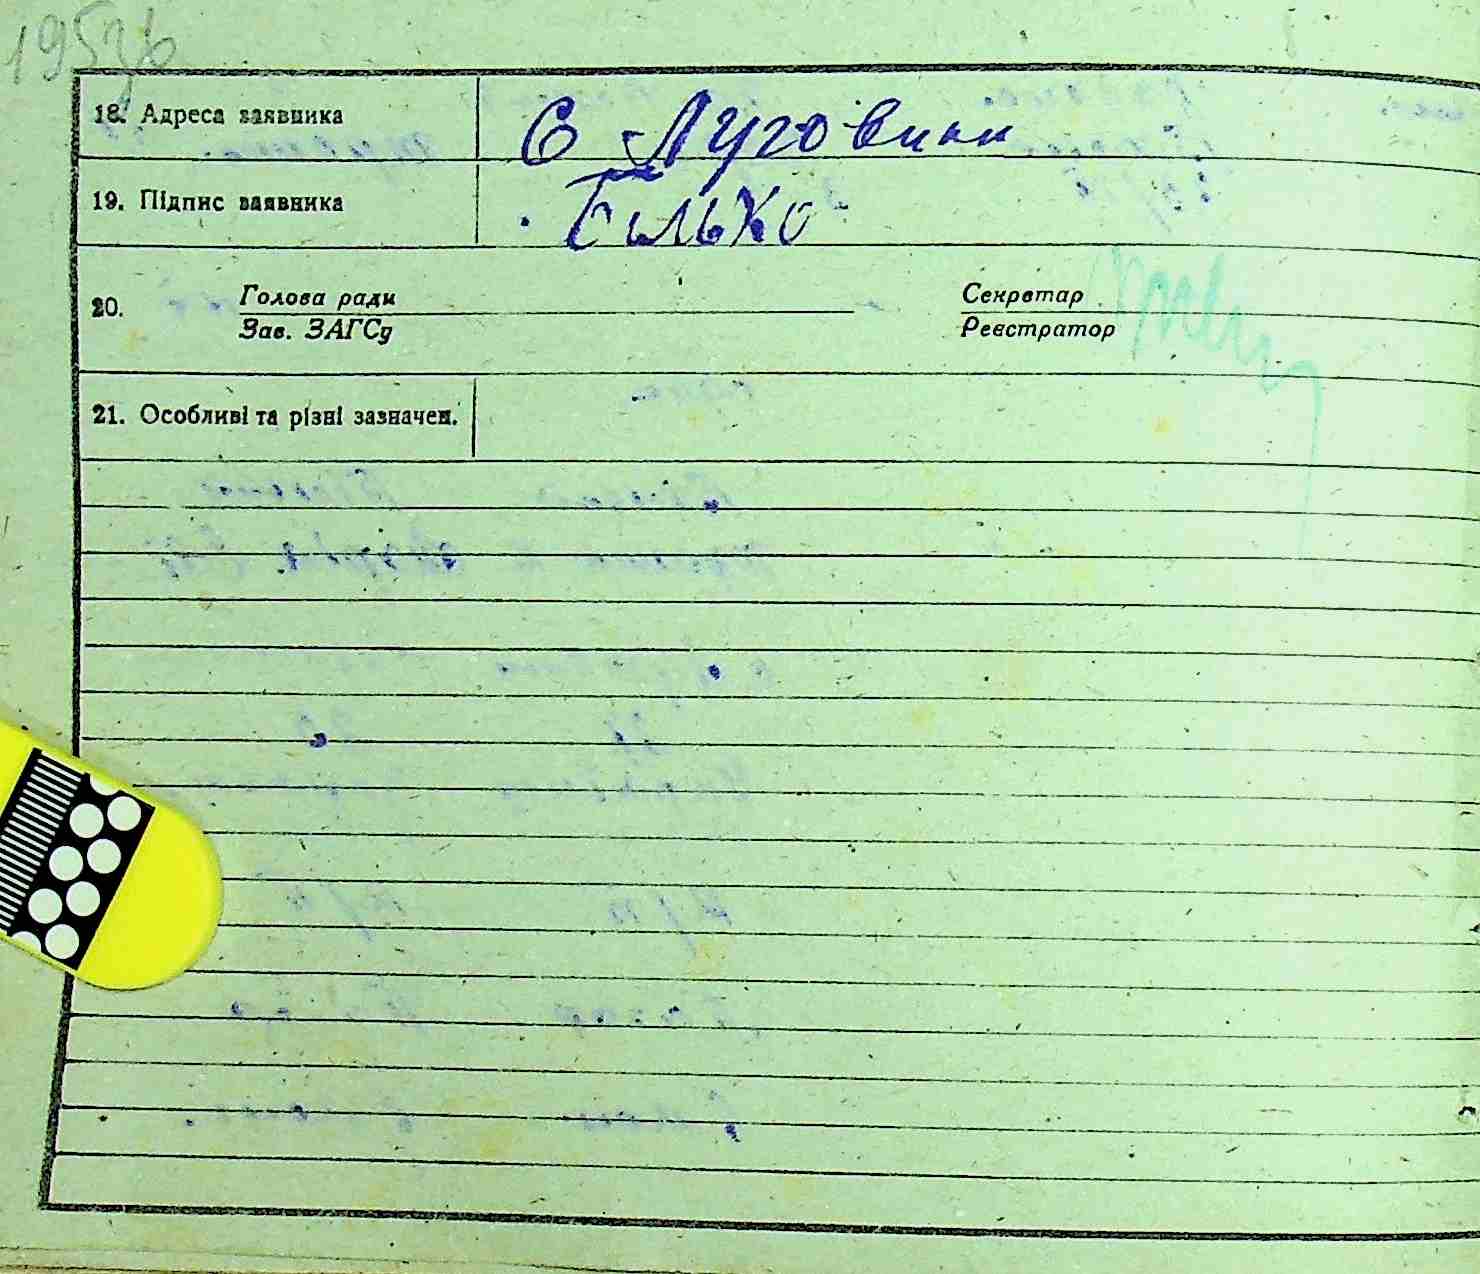 195зв
18. Адреса заявника С Луговики
19. Підпис заявника Білько
20. Голова ради Секретар
Зав. ЗАГСу Реєстратор
21. Особливі та різні зазначен.